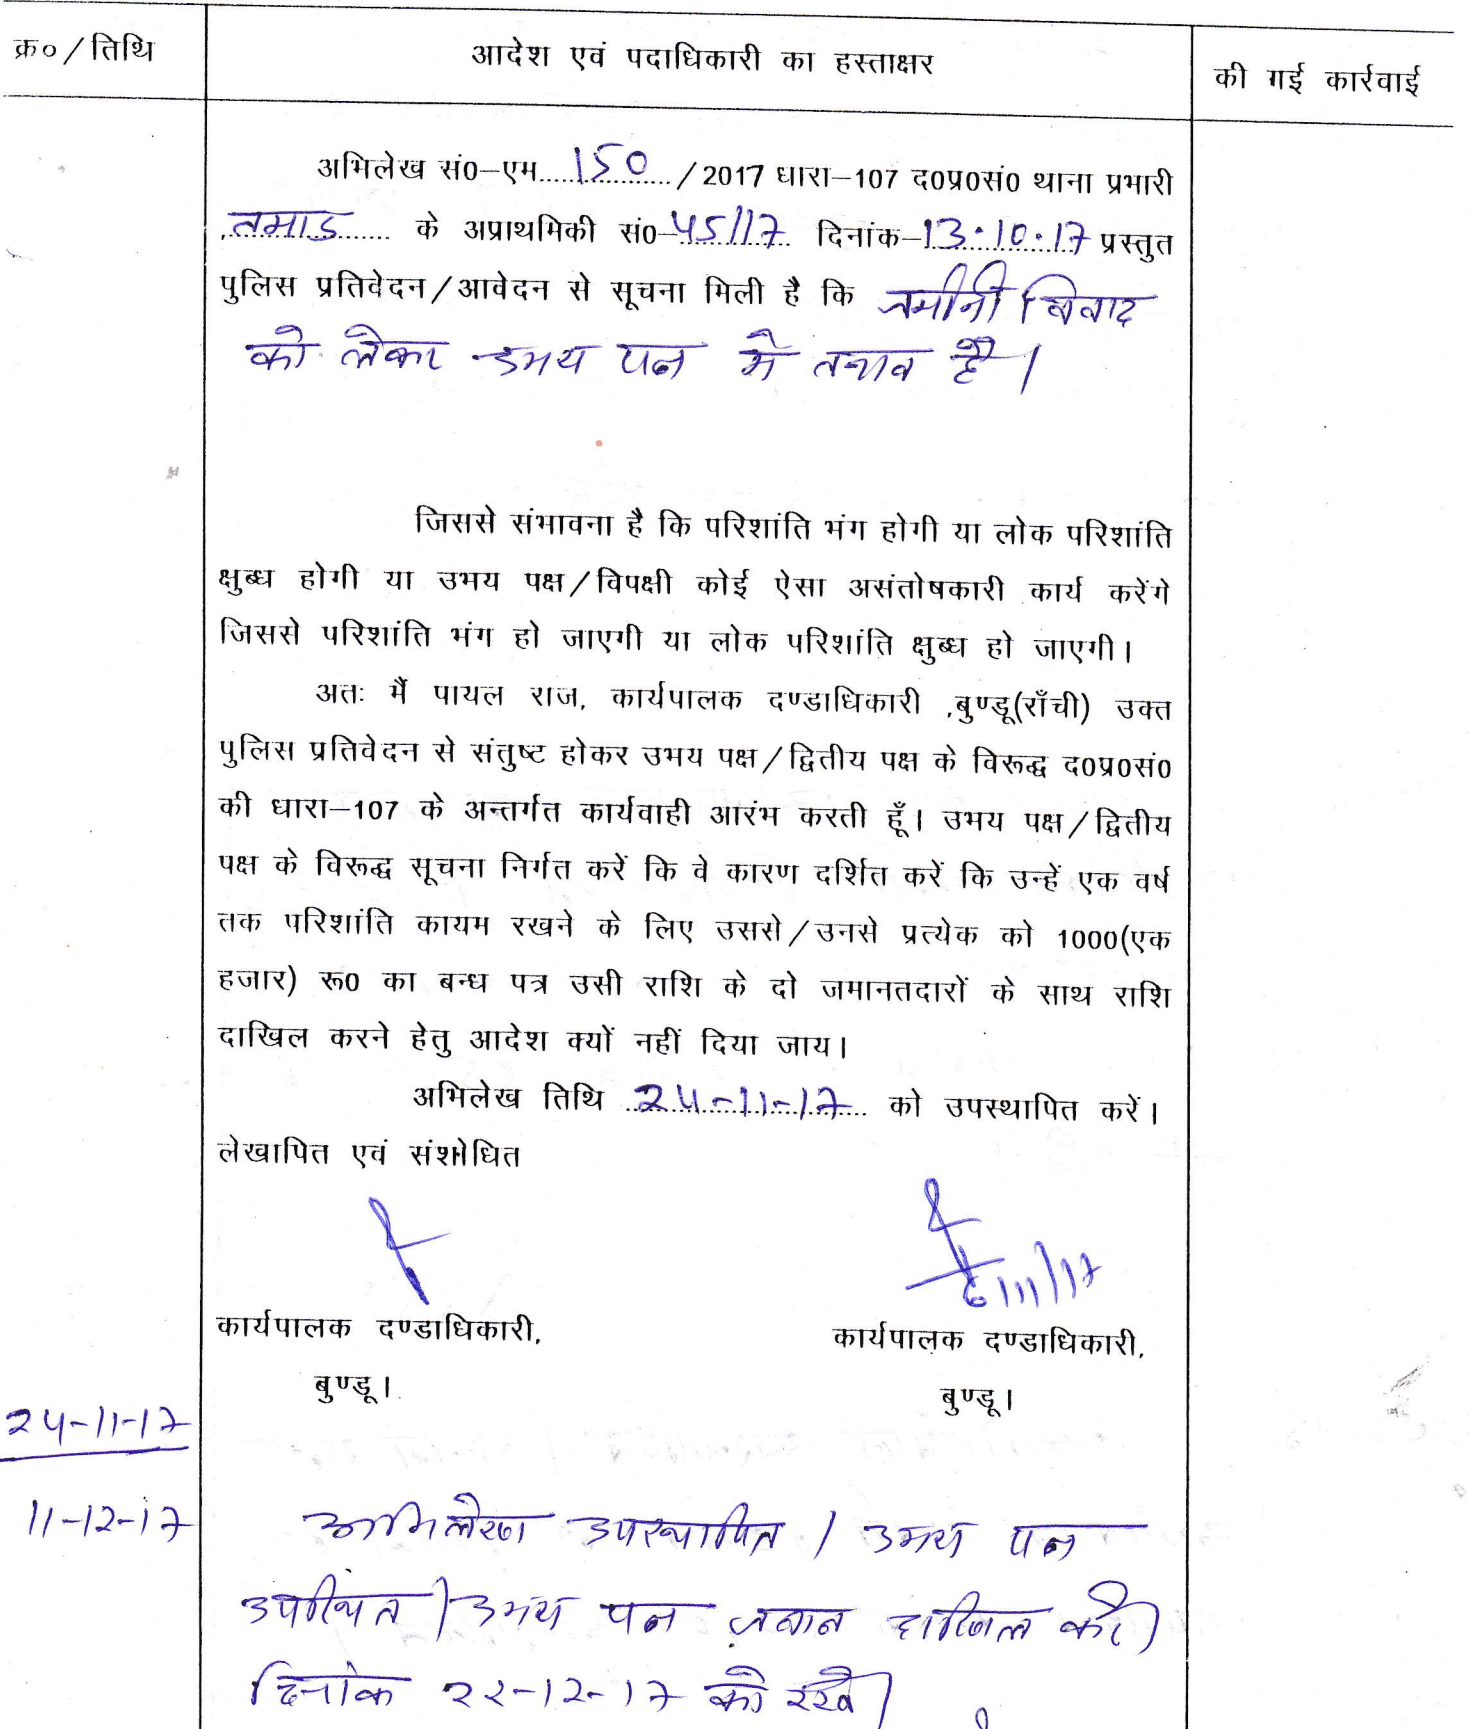 क्र० / तिथि
आदेश एवं पदाधिकारी का हस्ताक्षर
की गई कार्रवाई
अभिलेख सं0–एम 150 / 2017 धारा–107 द0प्र0सं0 थाना प्रभारी
तमाड के अप्राथमिकी सं0– 45/17 दिनांक– 13.10.17 प्रस्तुत
पुलिस प्रतिवेदन / आवेदन से सूचना मिली है कि जमीनी विवाद
को लेकर उभय पक्ष में तनाव है।
जिससे संभावना है कि परिशांति भंग होगी या लोक परिशांति
क्षुब्ध होगी या उभय पक्ष / विपक्षी कोई ऐसा असंतोषकारी कार्य करेंगे
जिससे परिशांति भंग हो जाएगी या लोक परिशांति क्षुब्ध हो जाएगी।
अतः मैं पायल राज, कार्यपालक दण्डाधिकारी ,बुण्डू(राँची) उक्त
पुलिस प्रतिवेदन से संतुष्ट होकर उभय पक्ष / द्वितीय पक्ष के विरूद्ध द0प्र0सं0
की धारा–107 के अन्तर्गत कार्यवाही आरंभ करती हूँ। उभय पक्ष / द्वितीय
पक्ष के विरूद्ध सूचना निर्गत करें कि वे कारण दर्शित करें कि उन्हें एक वर्ष
तक परिशांति कायम रखने के लिए उससे / उनसे प्रत्येक को 1000(एक
हजार) रू0 का बन्ध पत्र उसी राशि के दो जमानतदारों के साथ राशि
दाखिल करने हेतु आदेश क्यों नहीं दिया जाय।
अभिलेख तिथि 24-11-17 को उपस्थापित करें।
लेखापित एवं संशोधित
6/11/17
कार्यपालक दण्डाधिकारी,
कार्यपालक दण्डाधिकारी,
बुण्डू।
बुण्डू।
24-11-17
11-12-17
अभिलेख उपस्थापित। उभय पक्ष
उपस्थित। उभय पक्ष जवाब दाखिल करें।
दिनांक 22-12-17 को रखें।